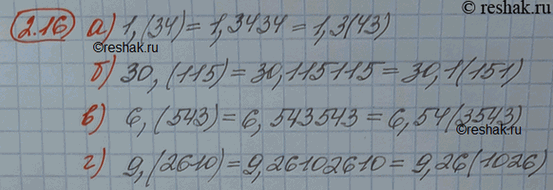 2.16 а) 1,(34) = 1,3434 = 1,3(43)
©reshak.ru
б) 30,(115) = 30,115115 = 30,1(151)
в) 6,(543) = 6,543543 = 6,54(3543)
©reshak.ru
г) 9,(2610) = 9,26102610 = 9,26(1026)